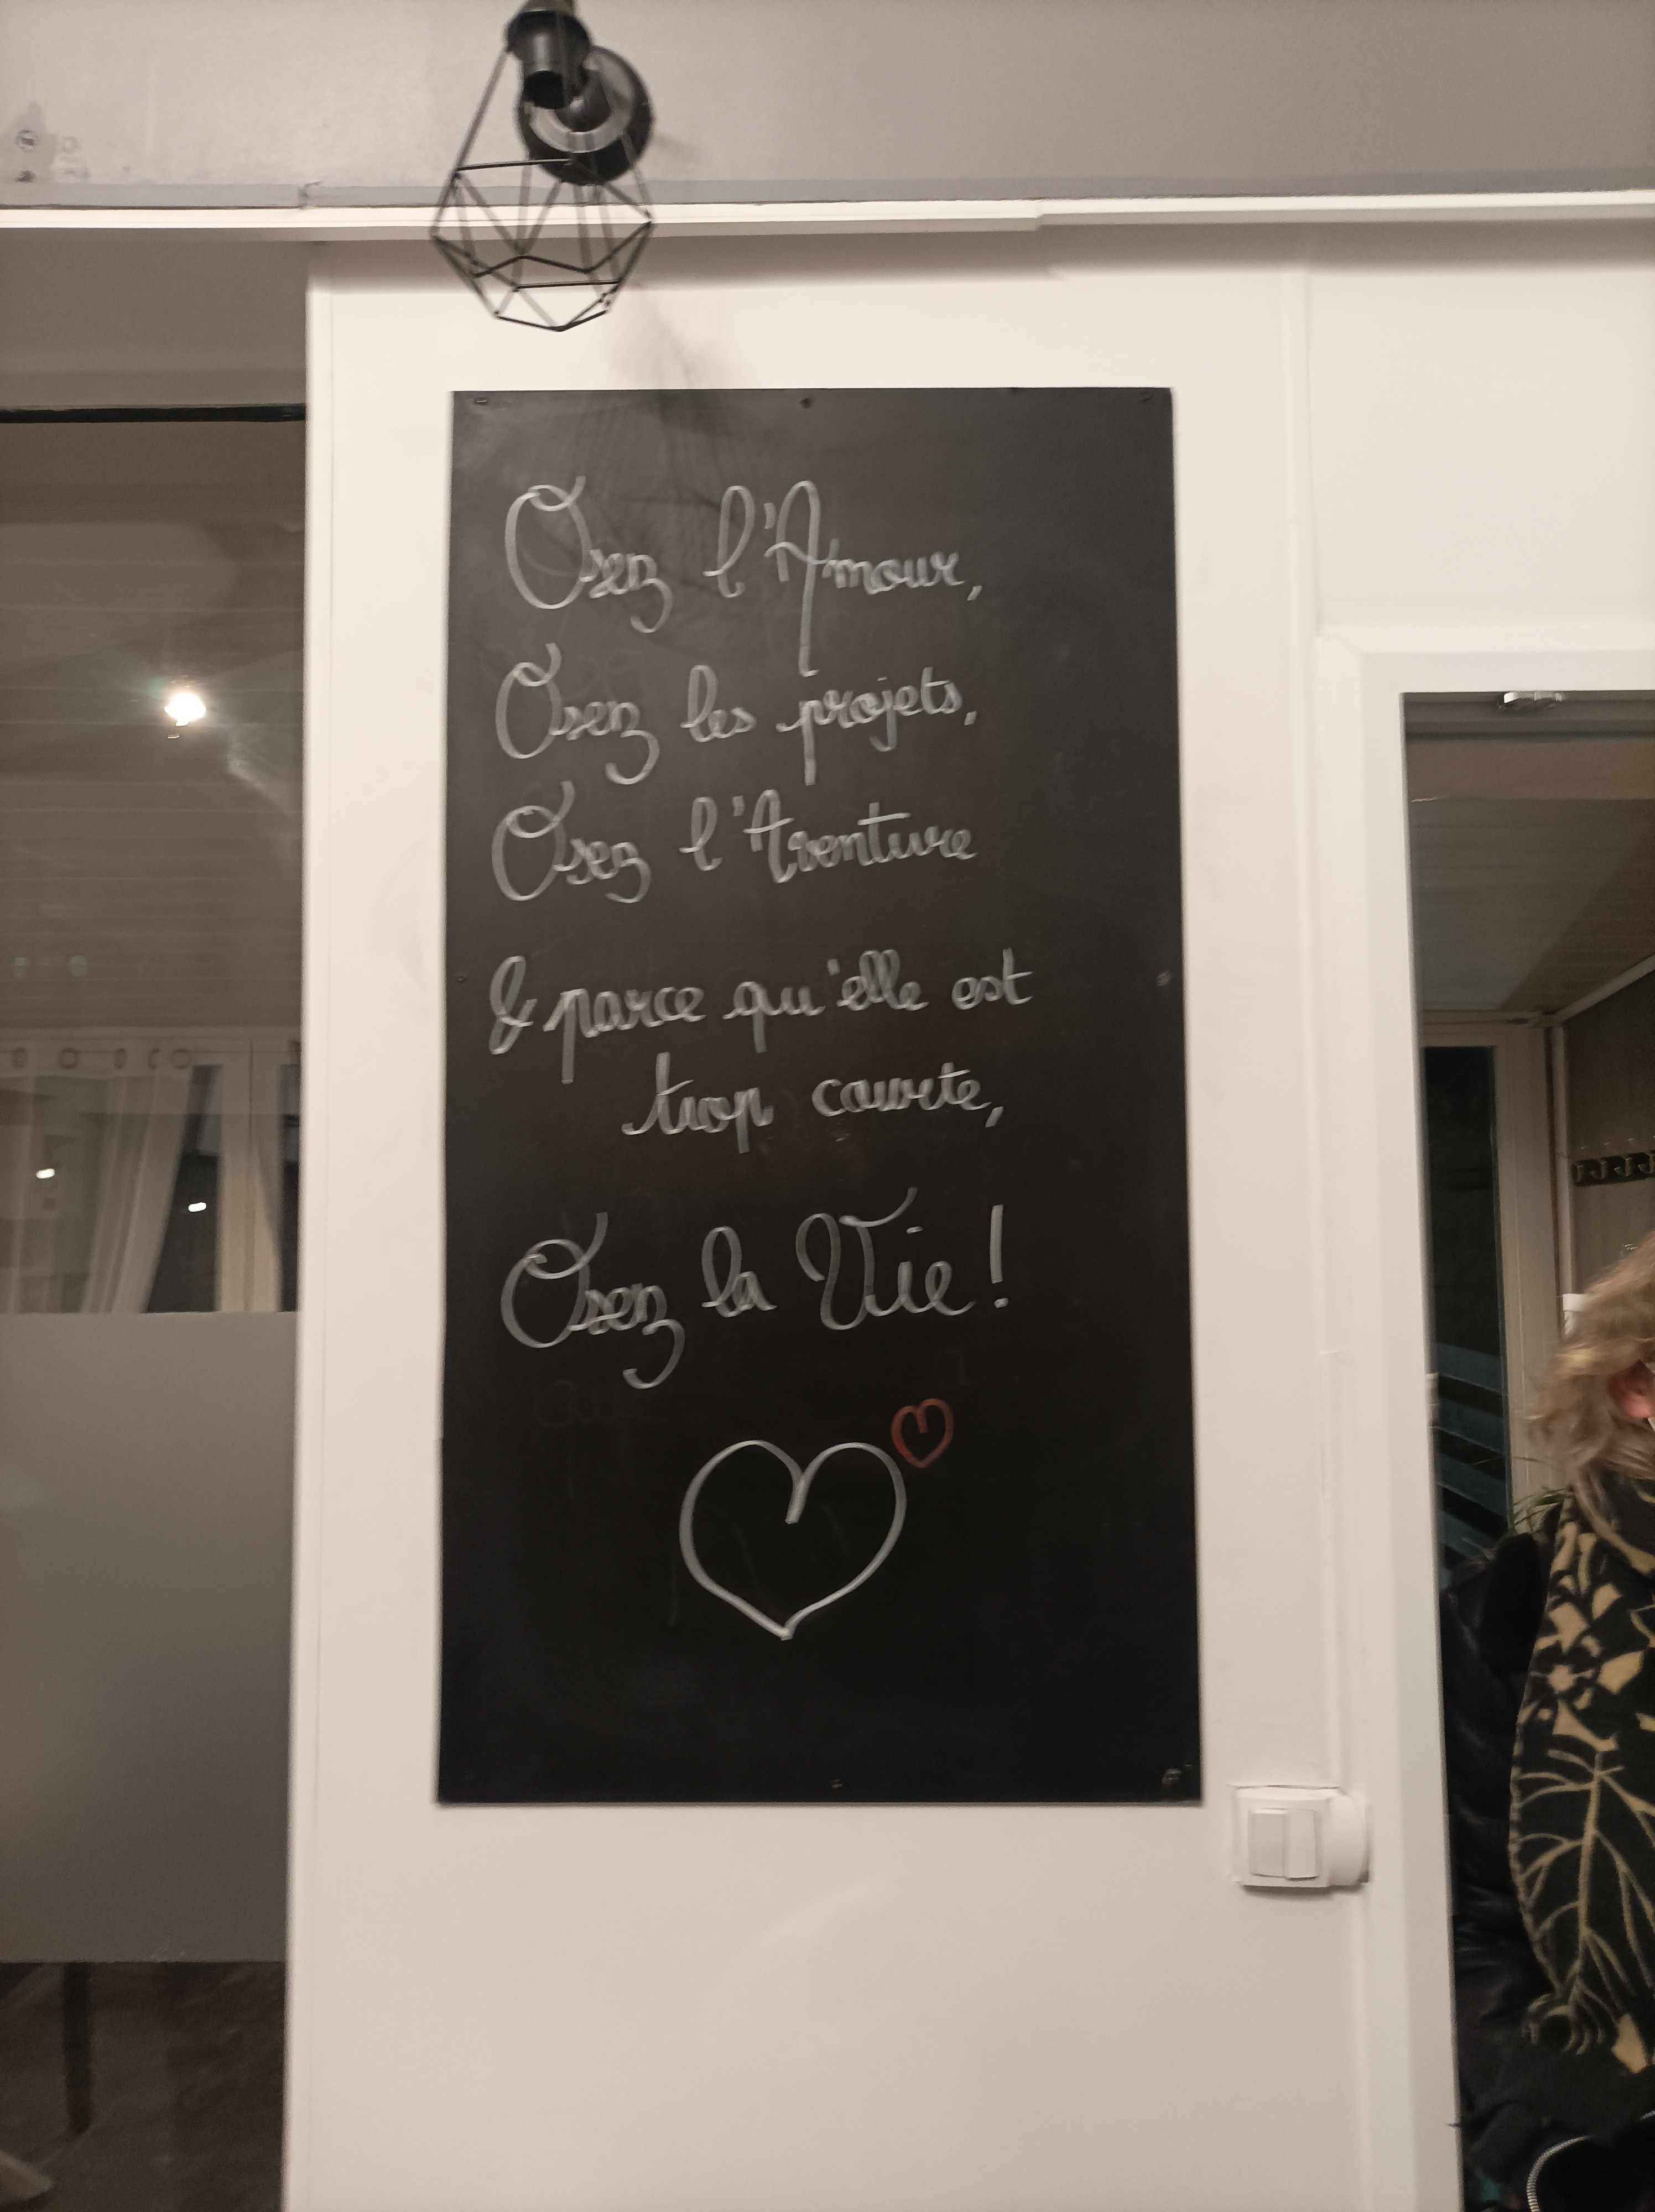 Osez l'Amour,
Osez les projets,
Osez l'Aventure
& parce qu'elle est
trop courte,
Osez la Vie !